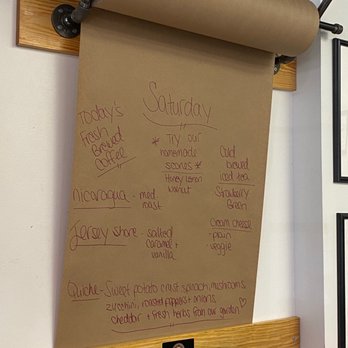 Saturday
Today's
Fresh
Brewed
Coffee
* Try our
homemade
scones *
Honey Lemon
Walnut
Cold
brewed
iced tea
Strawberry
Green
Nicaragua - med.
roast
Jersey Shore - salted
caramel +
vanilla
Cream Cheese
- plain
- veggie
Quiche - Sweet potato crust spinach, mushrooms,
zucchini, roasted peppers + onions
cheddar + fresh herbs from our garden ♡